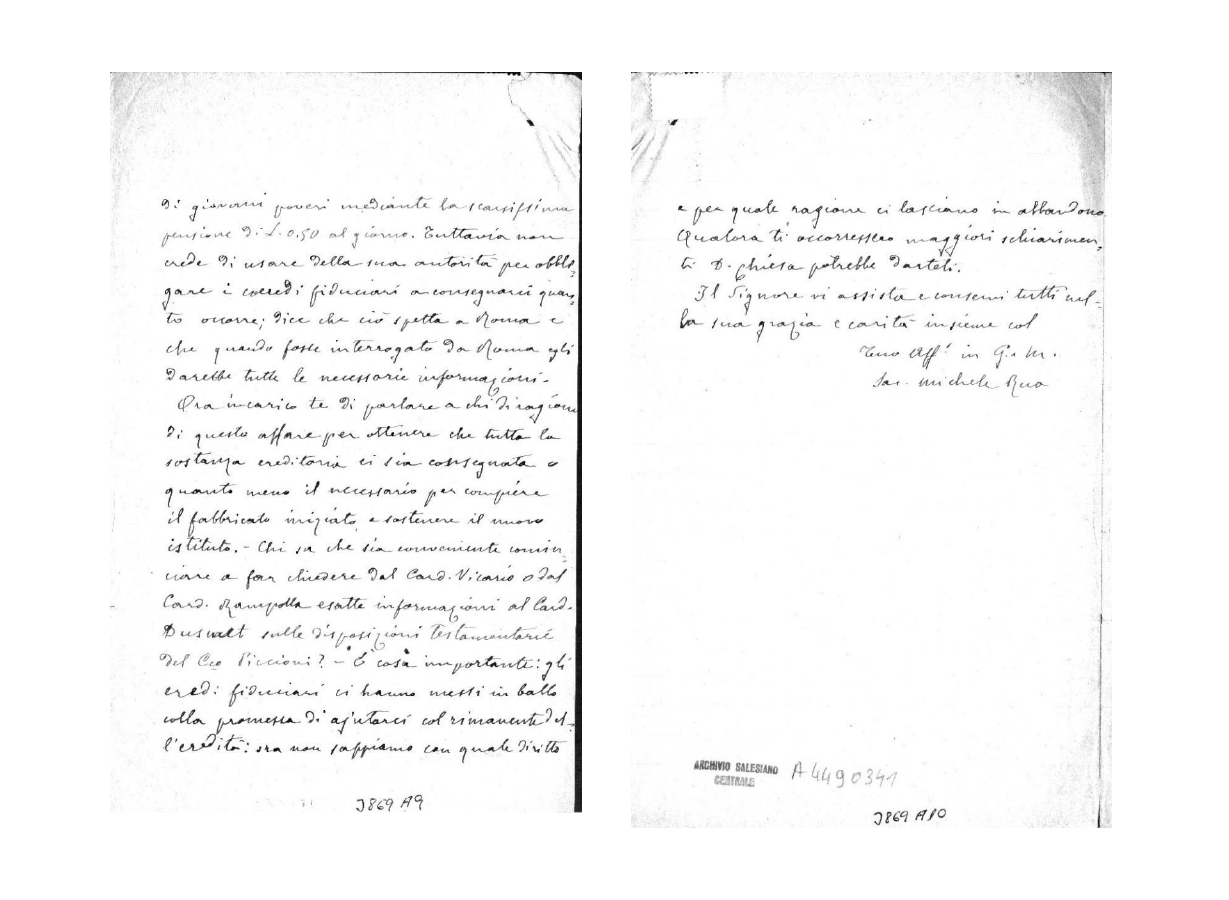 di giovani poveri mediante la scarsissima
pensione di L. 0,50 al giorno. Tuttavia non
crede di usare della sua autorità per obbli-
gare i coeredi fiduciari a consegnarci quan-
to occorre; dice che ciò spetta a Roma e
che quando fosse interrogato da Roma egli
darebbe tutte le necessarie informazioni.
Ora incarico te di parlare a chi di ragione
di questo affare per ottenere che tutta la
sostanza ereditaria ci sia consegnata o
quanto meno il necessario per compiere
il fabbricato iniziato e sostenere il nuovo
istituto. - Chi sa che sia conveniente comin-
ciare a far chiedere dal Card. Vicario o dal
Card. Rampolla esatte informazioni al Card.
sulle disposizioni testamentarie
del Piccioni? - È cosa importante: gli
eredi fiduciari ci hanno messi in ballo
colla promessa di ajutarci col rimanente del-
l'eredità: ora non sappiamo con quale diritto
e per quale ragione ci lasciano in abbandono.
Qualora ti occorressero maggiori schiarimen-
ti D. Chiesa potrebbe darteli.
Il Signore vi assista e conservi tutti nel-
la sua grazia e carità insieme col
Tuo Aff.^ in G. e M.
Sac. Michele Rua
ARCHIVIO SALESIANO
CENTRALE
A4490341
J869 A9
J869 A10